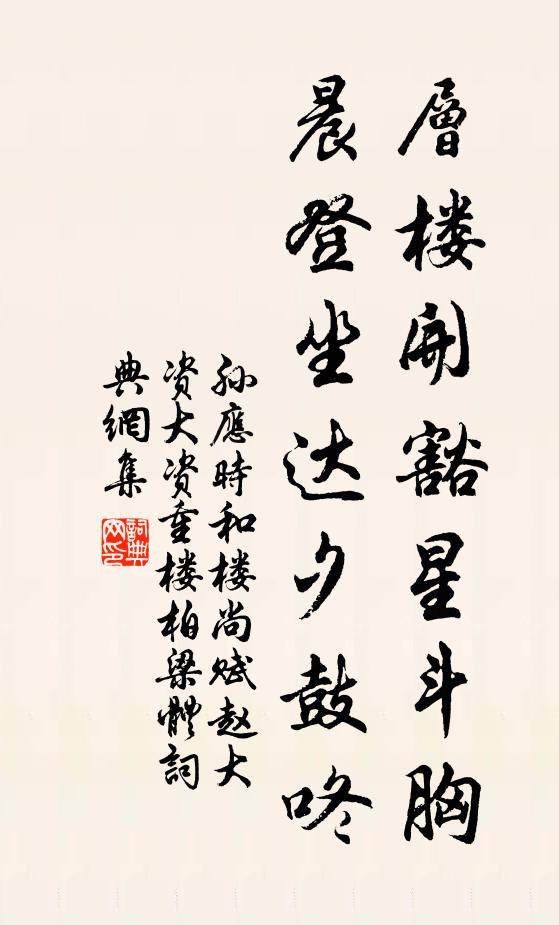 層楼開豁星斗胸
晨登坐达夕鼓咚
孙應時和楼尚赋趙大
资大资重楼柏梁體詞
典網集
詞典网印